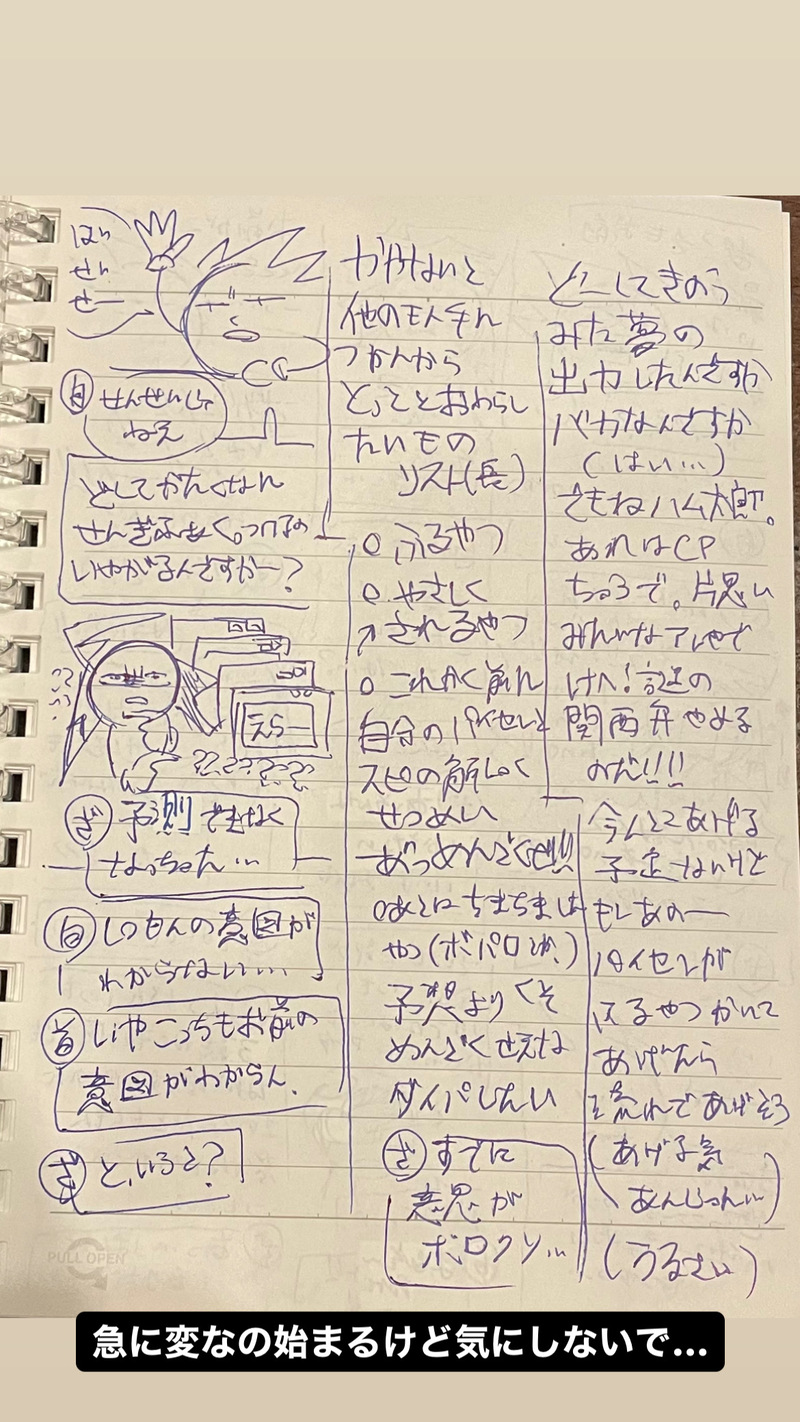 はい
せん
せー
自 せんせいじゃ
ねえ
どしてかたくなん
せんぎふぁく。つけるの
いやがるんですかー?
えらー
ざ 予測できなく
なっちゃた…
自 しつもんの意図が
わからない…
首 いやこっちもお前の
意図がわからん.
ざ と、いうと?
かかないと
他のモんすん
つかんから
とっととおわらし
たいもの
リスト(長)
○ふるやつ
○やさしく
されるやつ
○これかく前に
自分のパイセンと
スピの解しゃく
せつめい
めんどくせ!!!
○あとはちまちま
やつ(ボパロとか、)
予想よりくそ
めんどくせえな
ダイパしたい
ざ すでに
意思が
ボロクソ…
どーしてきのう
みた夢の
出力したんですか
バカなんですか
(はい…)
さもねハム太郎。
あれはCP
ちゅうで。片思い
みんなアレやで
けへ!謎の
関西弁やめる
のだ!!!
今んとこあげる
予定ないけど
もしあのー
パイセンが
ふるやつかいて
あげたら
流れであげそう
(あげる気
あんじゃん…)
(うるさい)
PULL OPEN
急に変なの始まるけど気にしないで…